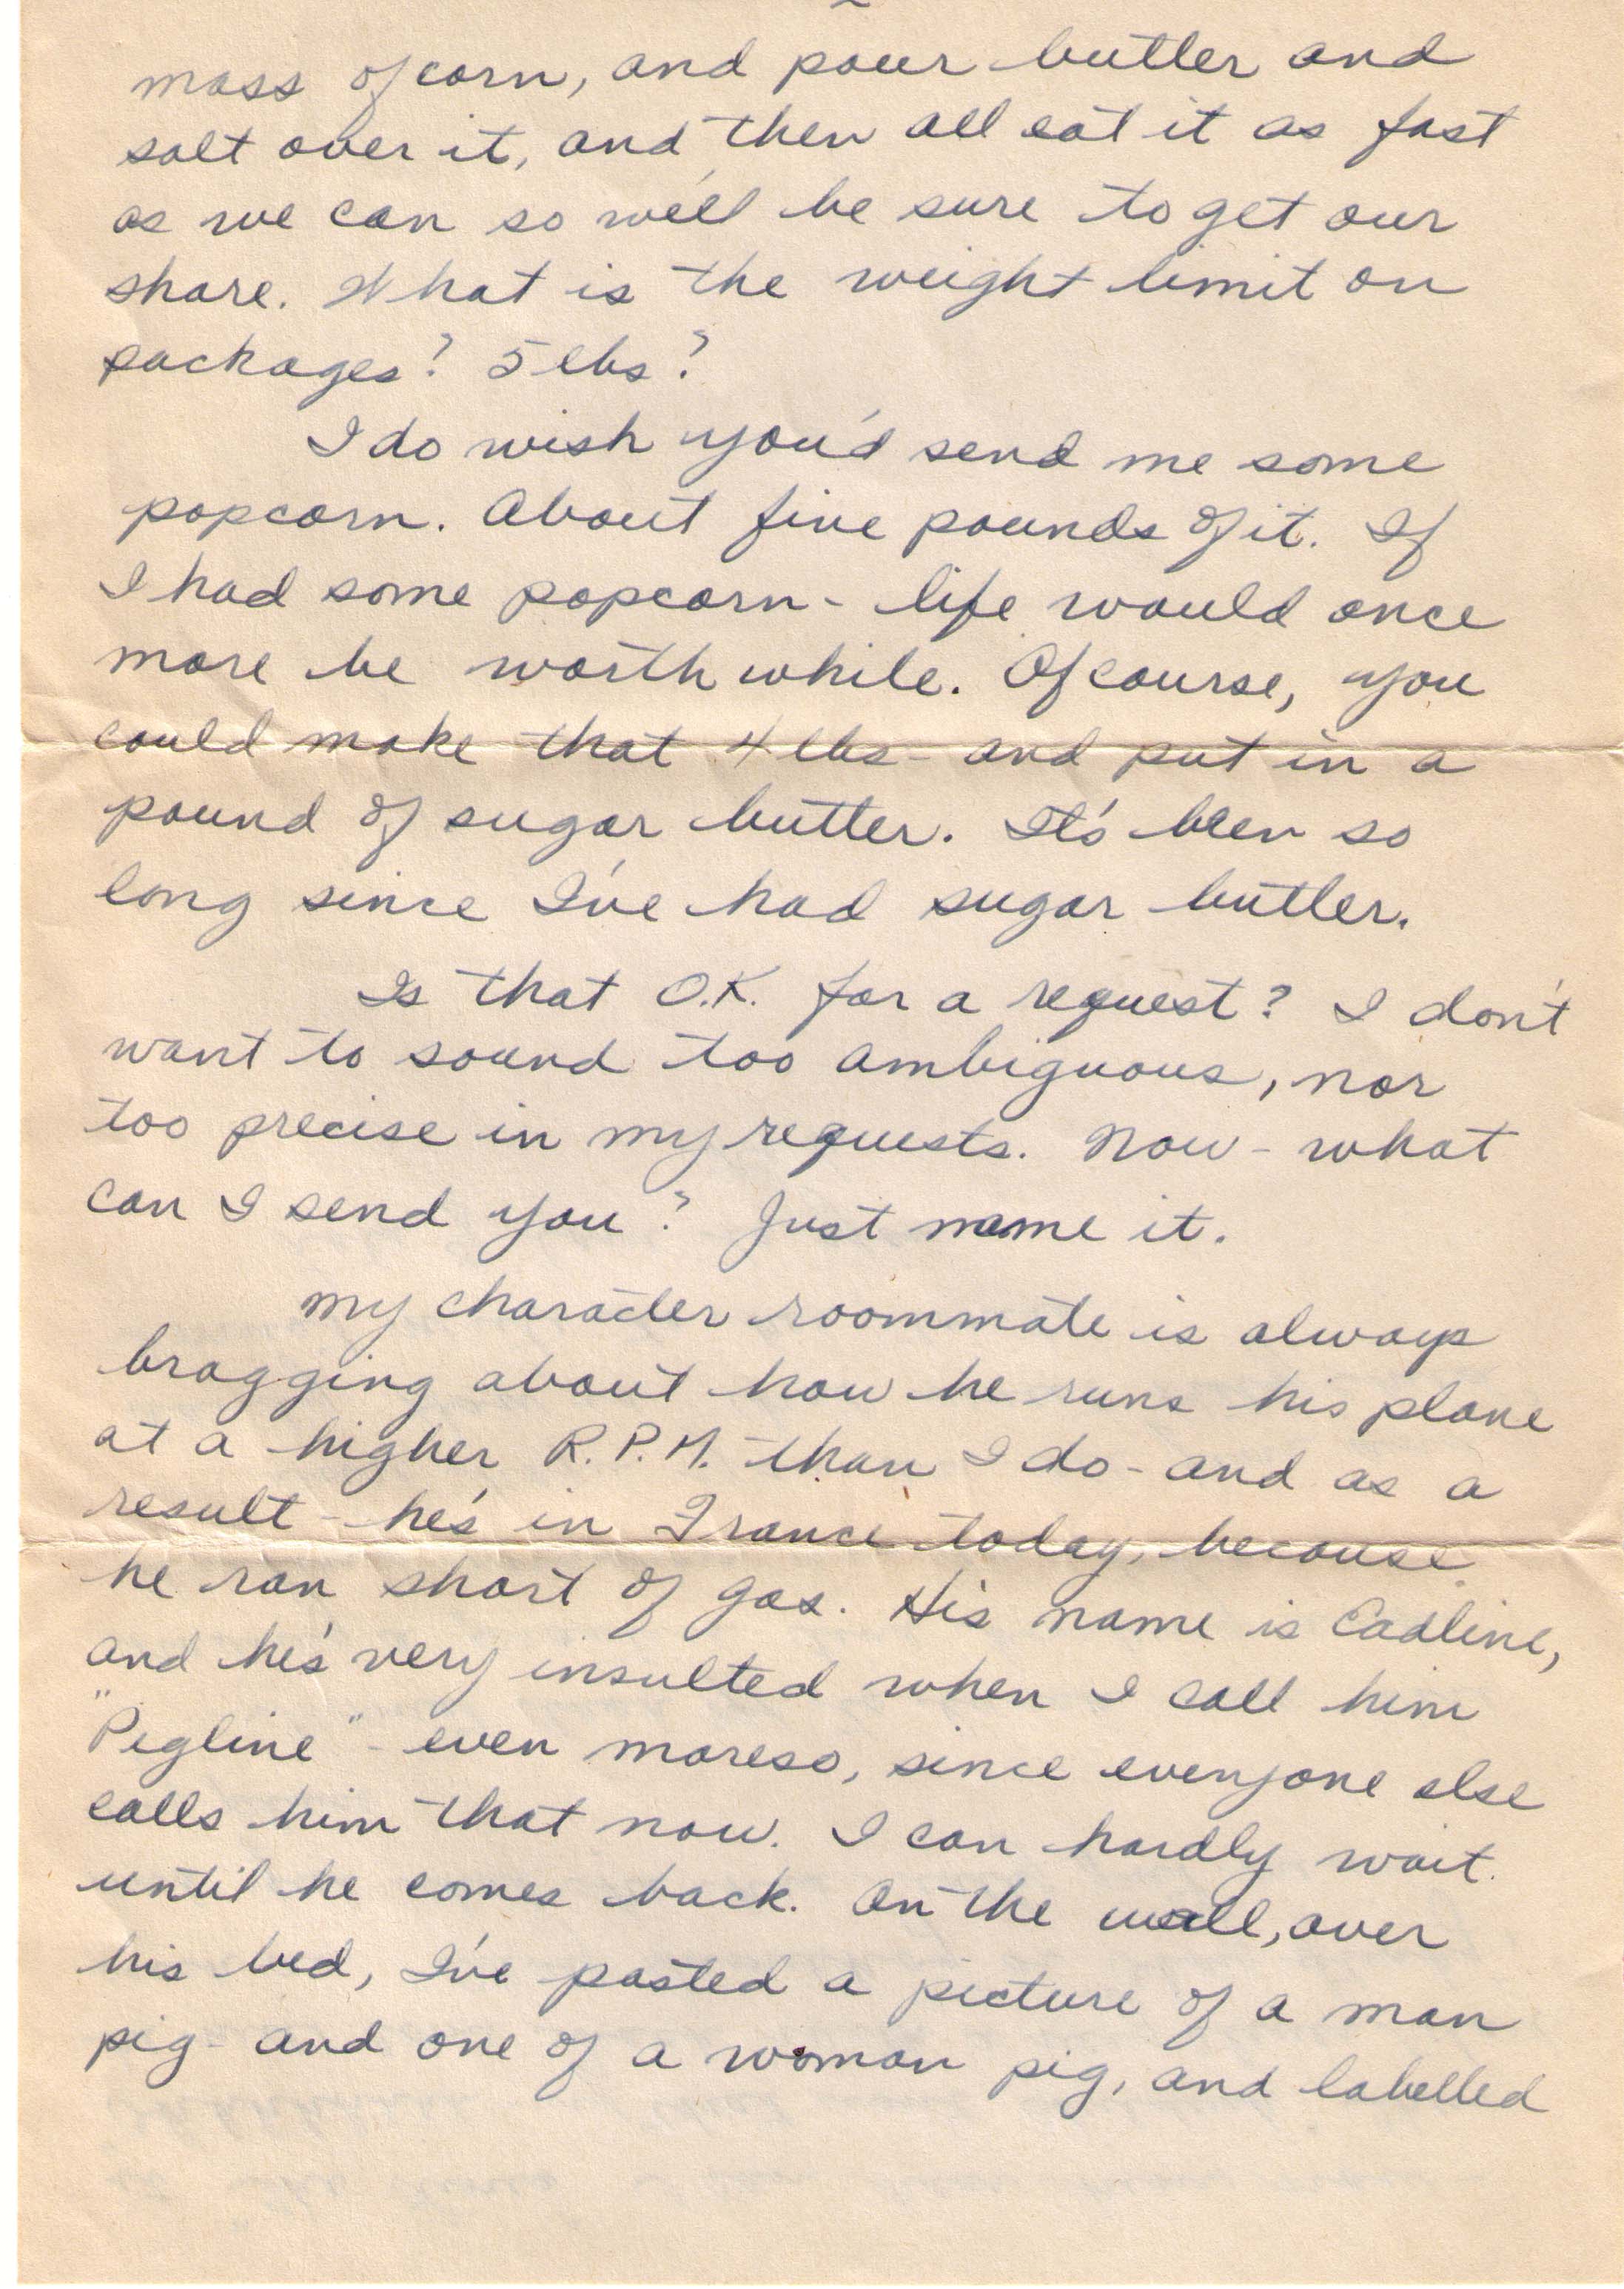 mass of corn, and pour butter and
salt over it, and then all eat it as fast
as we can so we'll be sure to get our
share. What is the weight limit on
packages? 5 lbs?
I do wish you'd send me some
popcorn. About five pounds of it. If
I had some popcorn - life would once
more be worth while. Of course, you
could make that 4 lbs - and put in a
pound of sugar butter. It's been so
long since I've had sugar butter.
Is that O.K. for a request? I don't
want to sound too ambiguous, nor
too precise in my requests. Now - what
can I send you? Just name it.
My character roommate is always
bragging about how he runs his plane
at a higher R.P.M. than I do - and as a
result - he's in France today, because
he ran short of gas. His name is Eadline,
and he's very insulted when I call him
"Pigline" - even moreso, since everyone else
calls him that now. I can hardly wait
until he comes back. On the wall, over
his bed, I've pasted a picture of a man
pig - and one of a woman pig, and labelled